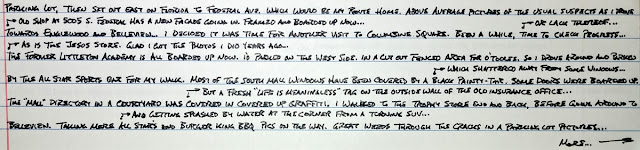 Parking Lot, Then set out East on Florida to Federal Ave. Which would be my Route Home. Above Average Pictures of the Usual Suspects as I drove
→ Old Shop at 5005 S. Federal Has a New Facade Going in. Framed and Boarded up Now... → or Lack Thereof...
Towards Englewood and Belleview. I Decided it was Time for Another Visit to Columbine Square. Been a While, Time to Check Progress...
→ As is the Jesus Store. Glad I Got the Photos I did Years ago...
The Former Littleton Academy is All Boarded Up Now. I'd Parked on the West Side. In a Cut Out Fenced Area for O'Tooles. So I Drove Around and Parked
→ Which Shattered Away From Some Windows...
By the All Star Sports Bar For my Walk. Most of the South Mall Windows Have Been Covered by a Black Paint-Tar. Some Doors Were Boarded Up.
→ But a Fresh "Life is Meaningless" Tag on the Outside Wall of the Old Insurance Office...
The "Mall" Directory in a Courtyard was Covered in Covered Up Graffiti. I Walked to the Trophy Store End and Back, Before Going Around to
→ And Getting Splashed by Water at the Corner From a Turning SUV...
Belleview. Taking More All Stars and Burger King BBQ Pics on the Way. Great Weeds Through the Cracks in a Parking Lot Pictures...
More... →